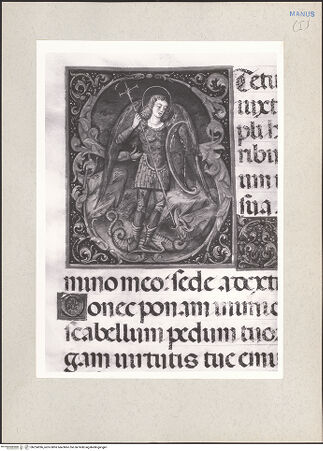 MANUS
(5)
Cetu
iuxt
pli h
ribu
um i
sua.
mino meo: sede a dext
Donec ponam inimic
scabellum pedum tuo
gam uirtutis tue emi